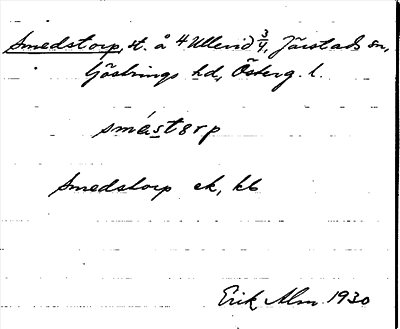 Smedstorp, st. å 4 Ullevid 3/4, Järstads sn,
Göstrings hd, Österg. l.
smástɛrp
Smedstorp ek, kb
Erik Alm 1930